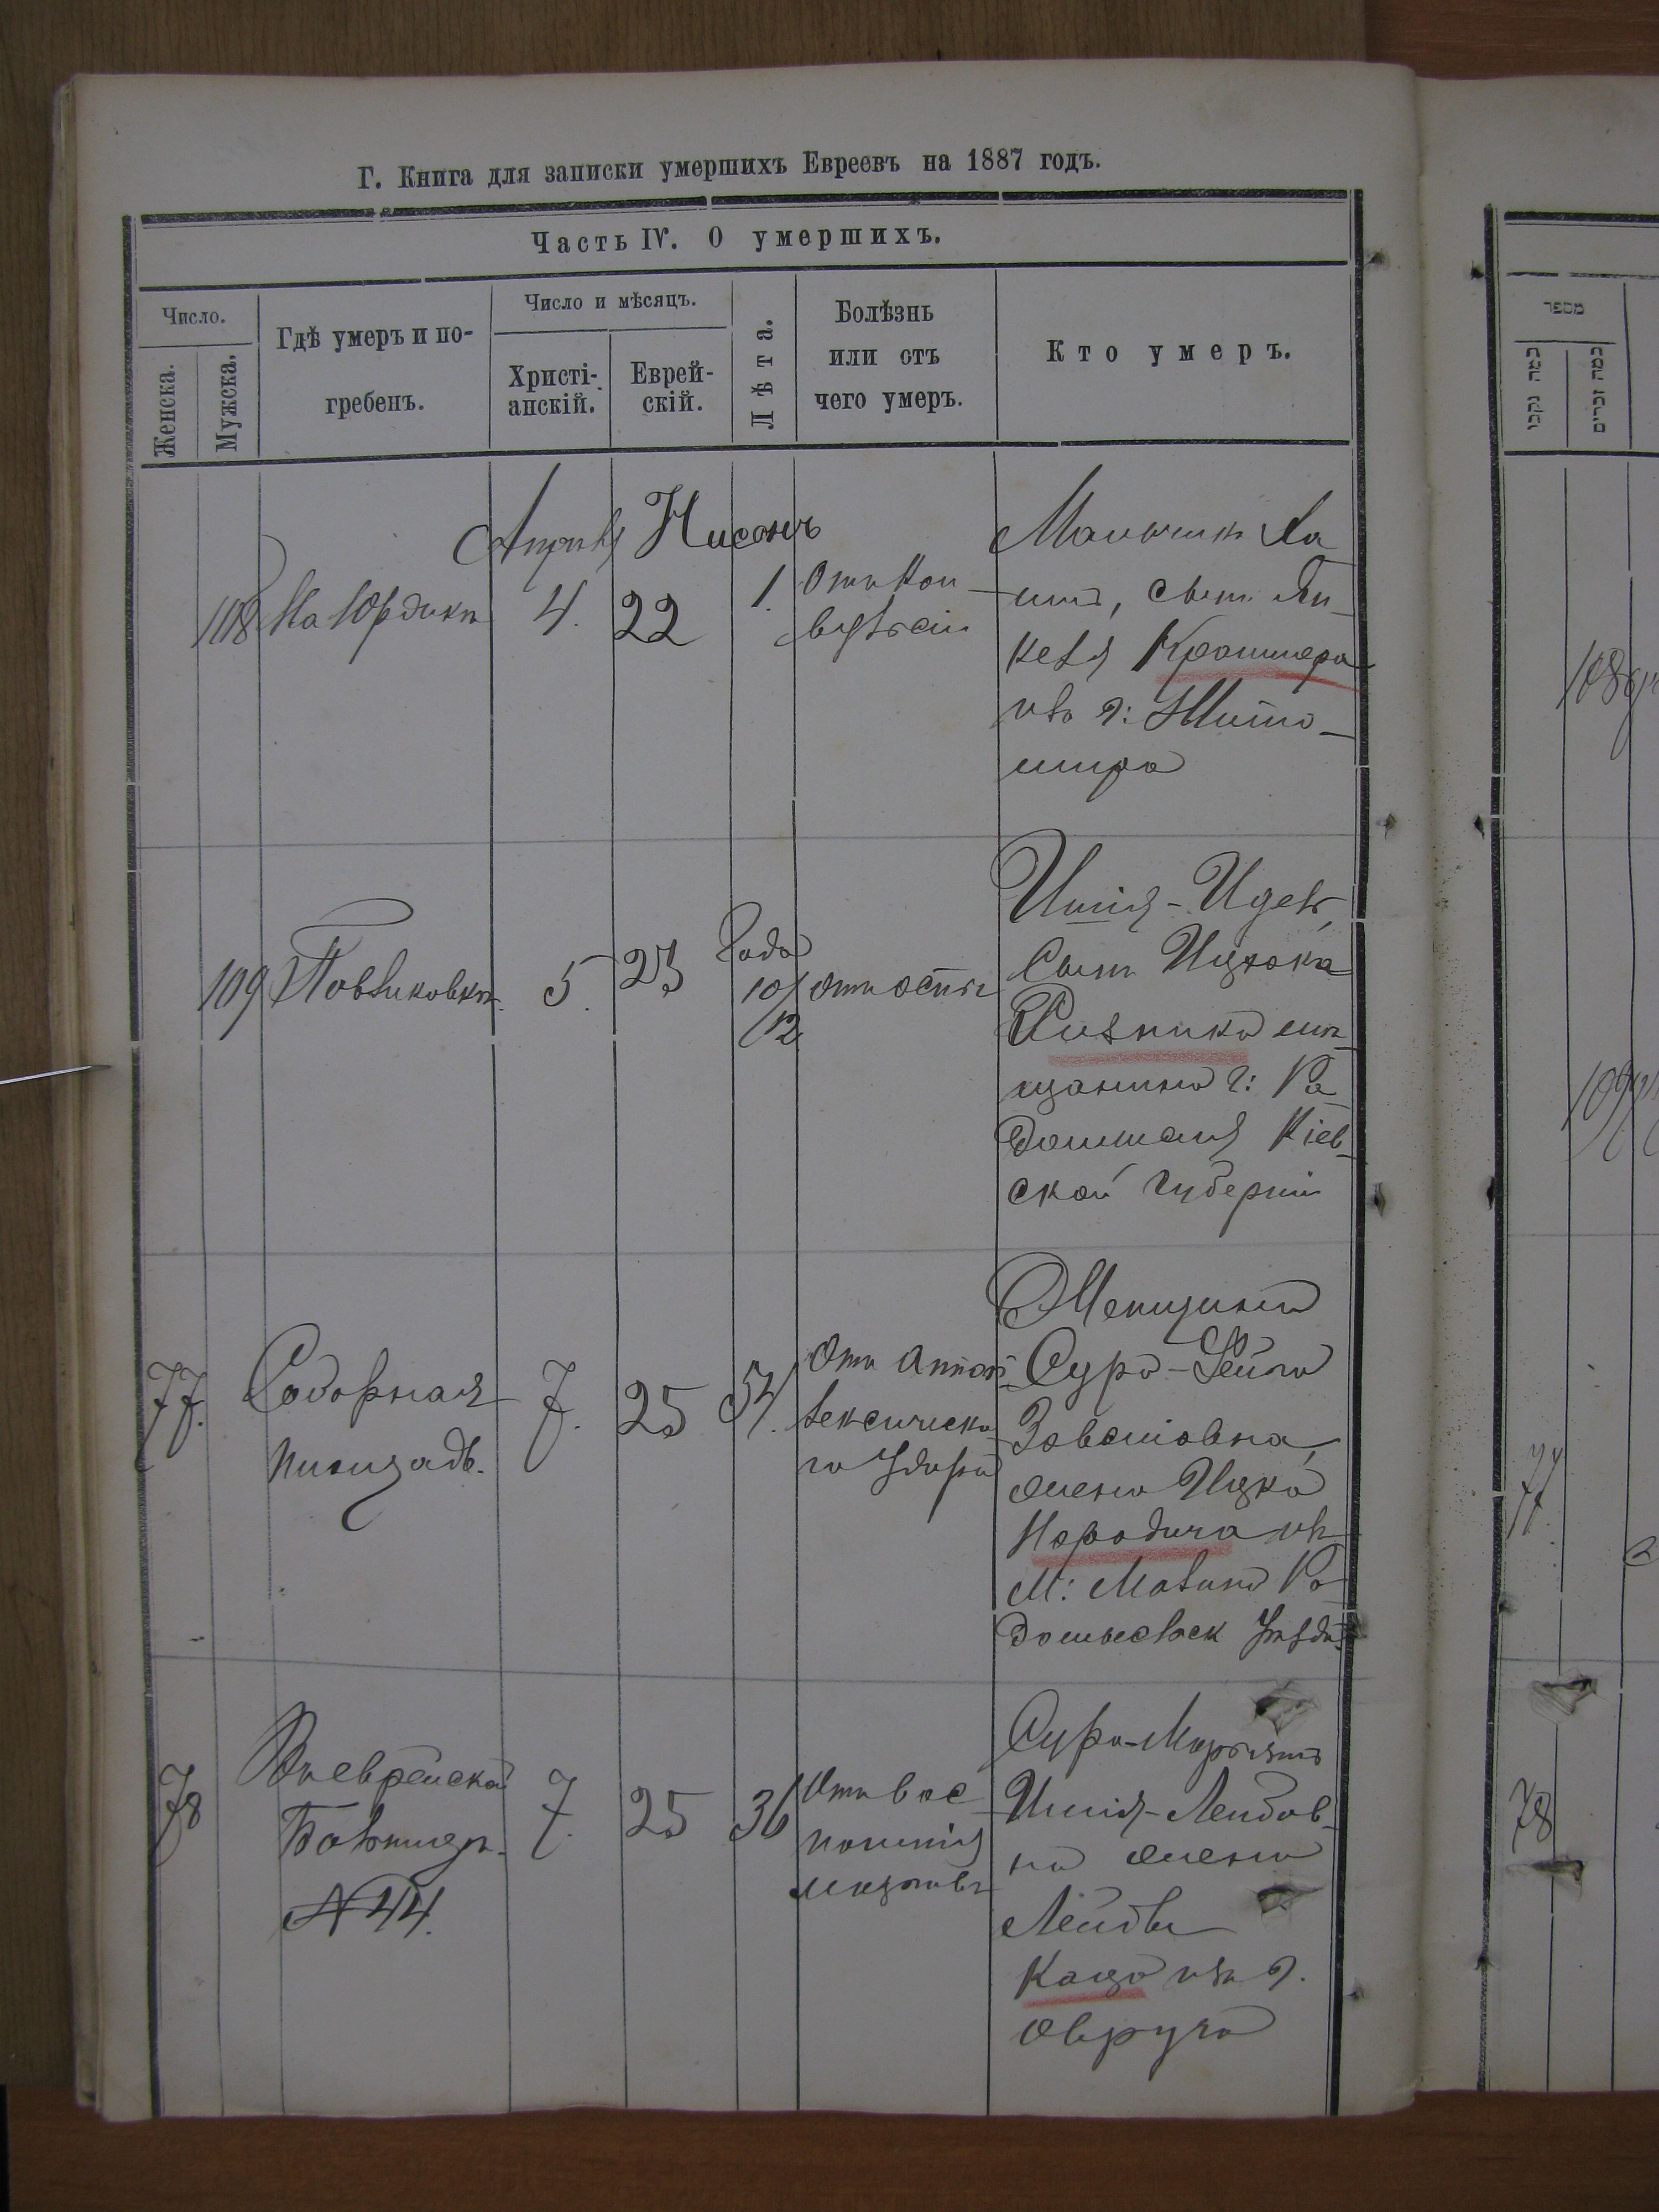 Г. Книга для записки умершихъ Евреевъ на 1887 годъ.
Часть IV. О умершихъ.
Число.
Женска.
Мужска.
Гдѣ умеръ и по-
гребенъ.
Число и мѣсяцъ.
Христі-
анскій.
Еврей-
скій.
Лѣта.
Болѣзнь
или отъ
чего умеръ.
Кто умеръ.
Апрѣль Нисонъ
108
На Юрдикѣ
4.
22
1.
Отъ кон-
вульсіи
Мальчикъ Ха
имъ, сынъ
Крашмера
изъ г: Жито-
мира
109
Павликовкѣ
5.
23
Года
10/12
отъ оспы
Ишія-Идель,
сынъ Ицхока
Ризника мѣ-
щанина г: Ра
домысля Кіев-
ской губерніи
77.
Соборная
площадь.
7.
25
54.
Отъ аппоп-
лексическа-
го удара
Женщина
Сура-Фейга
жена Ицка
Народича изъ
м: Малина Ра-
домысльск Уѣзда
78
Въ еврейской
Больницѣ
№ 44.
7.
25
36
Отъ вос-
поленія
Сура-Марьямъ
Ишія-Лейбов-
на жена
Лейбы
Каца изъ г.
Овруча
מספר
108
109
77
78